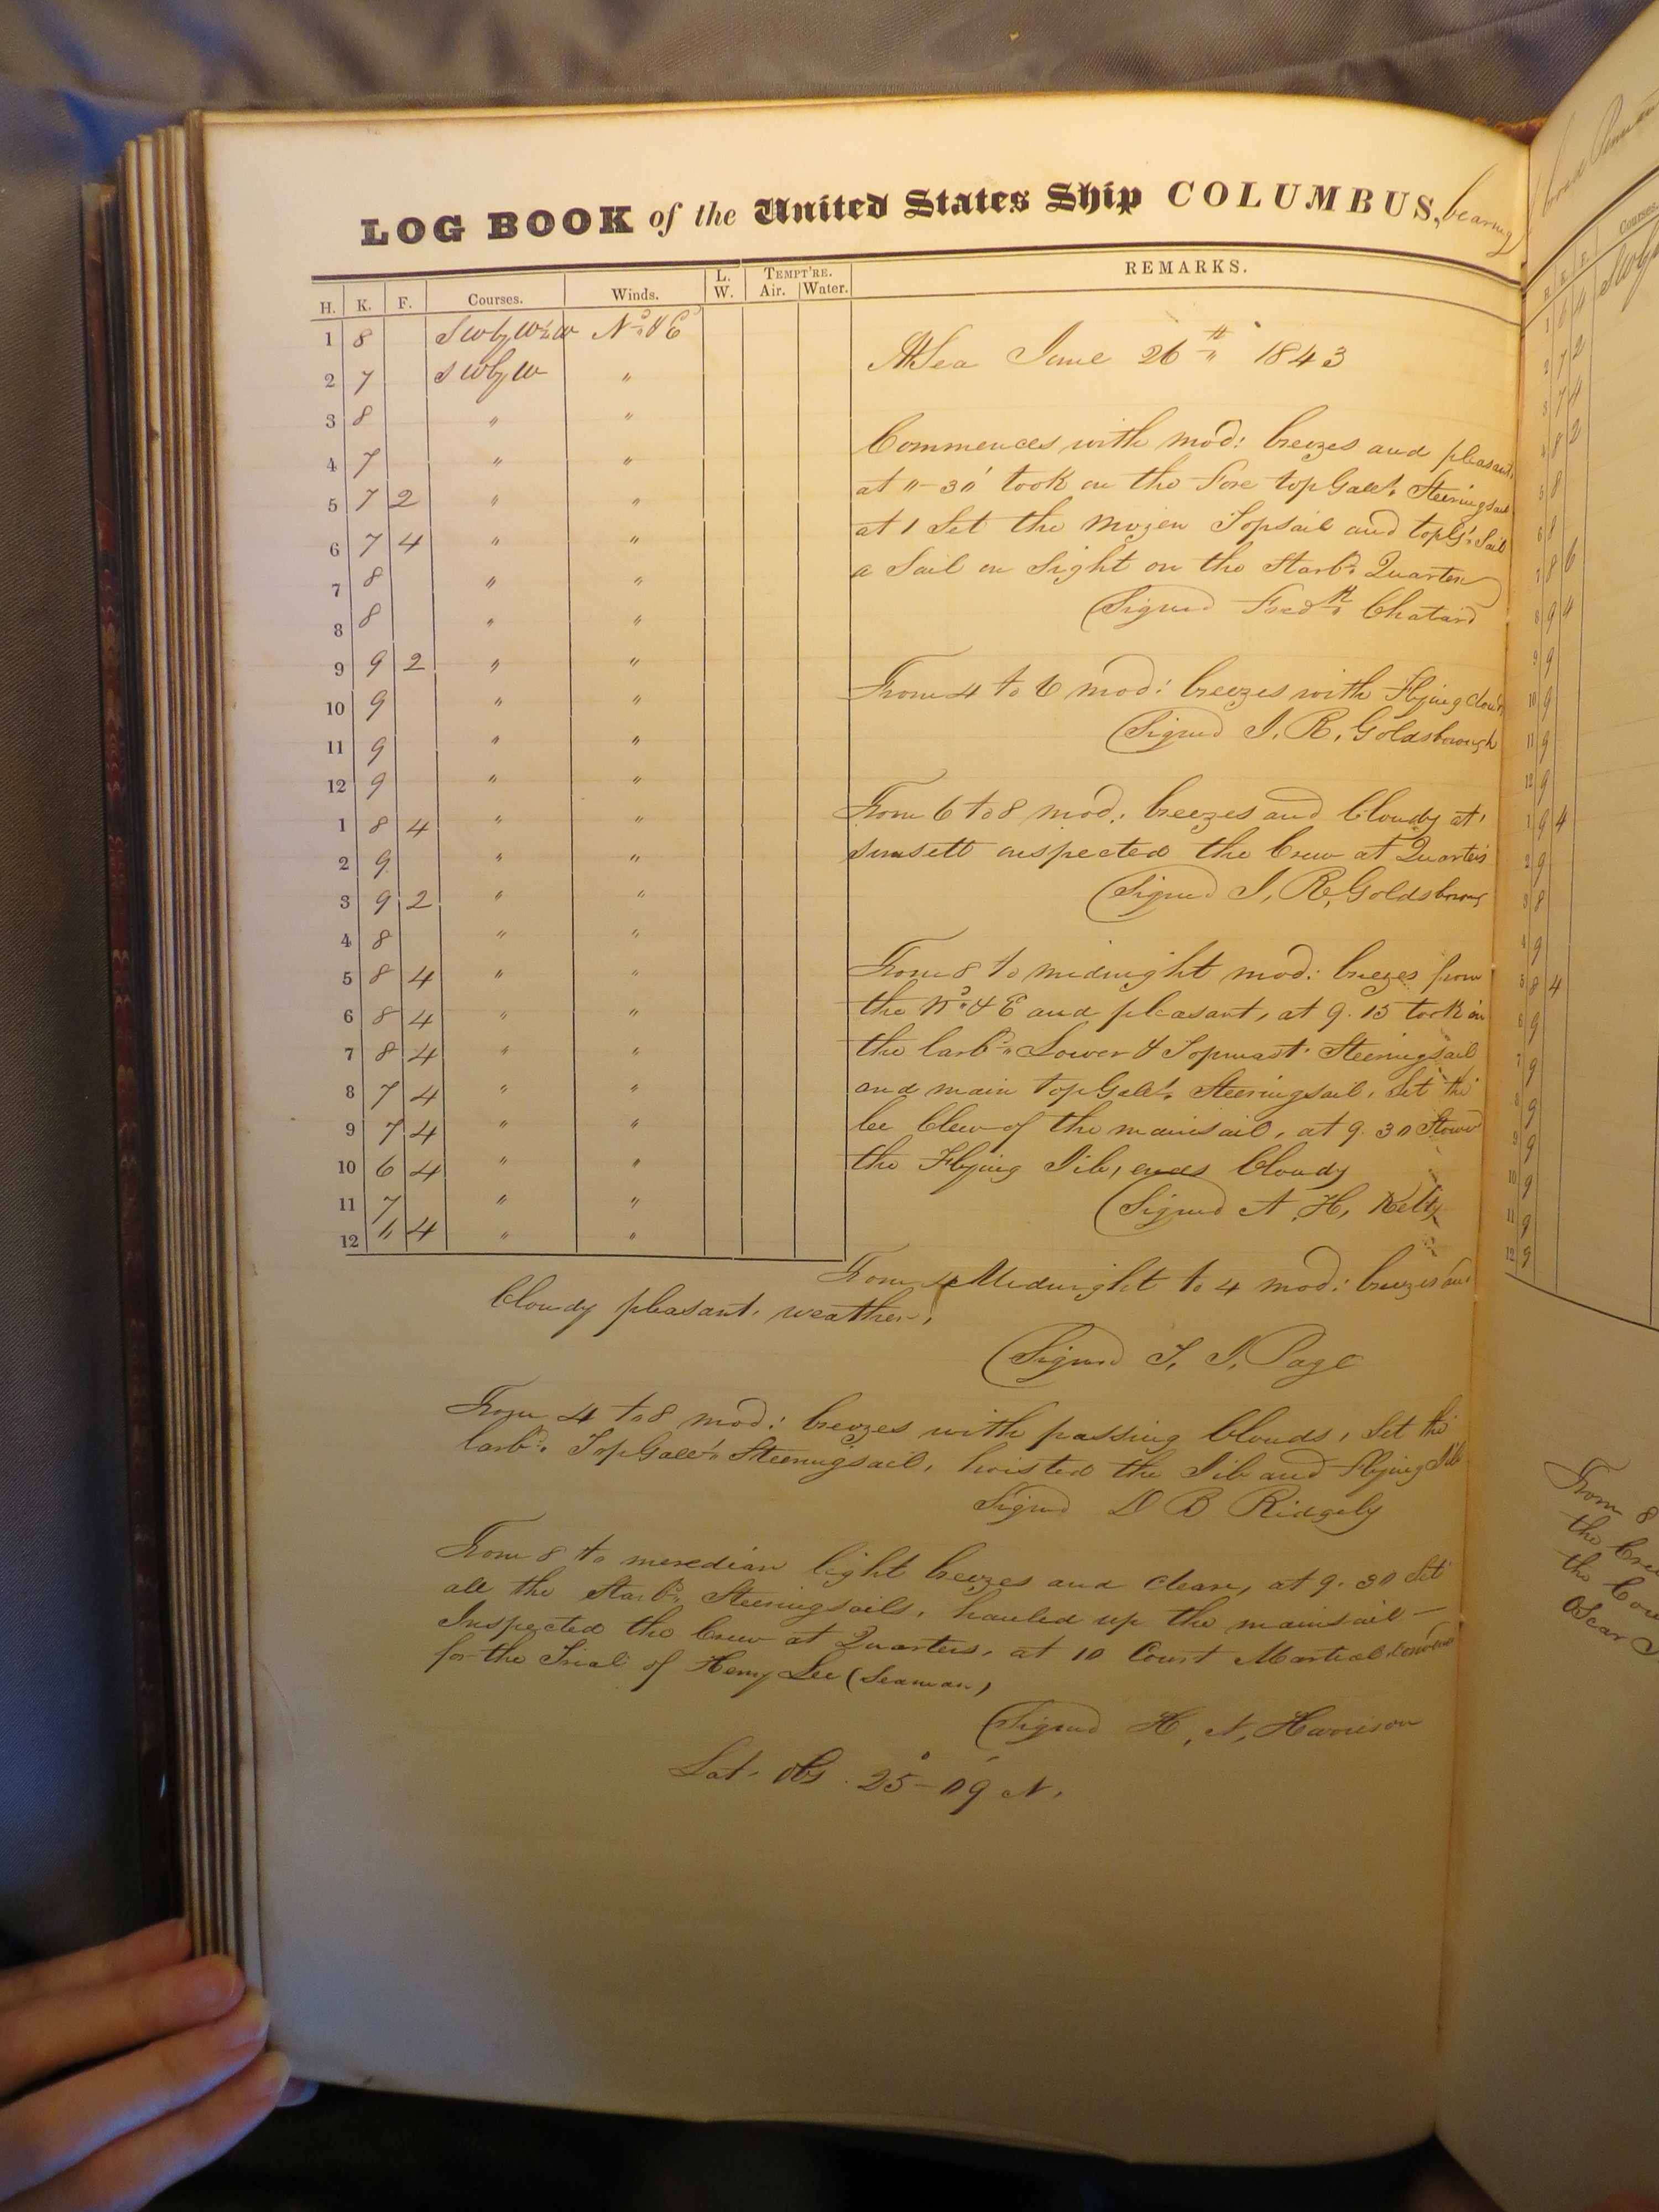 LOG BOOK of the United States Ship COLUMBUS, bearing
H. K. F. Courses. Winds. L. W. TEMPT'RE. Air. Water. REMARKS.
1 8 SWbyW½W Nº & E
2 7 SWbyW "
3 8 " "
4 7 " "
5 7 2 " "
6 7 4 " "
7 8 " "
8 8 " "
9 9 2 " "
10 9 " "
11 9 " "
12 9 " "
1 8 4 " "
2 9 " "
3 9 2 " "
4 8 " "
5 8 4 " "
6 8 4 " "
7 8 4 " "
8 7 4 " "
9 7 4 " "
10 6 4 " "
11 7 " "
12 " 4 " "
At Sea June 26th 1843
Commences with mod: breezes and pleasant,
at "-30' took in the Fore topGallt. Steeringsail
at 1 Set the Mizen Topsail and topGt. Sail
a Sail in sight on the Starbd. Quarter
(Signed Fredk. Chatard
From 4 to 6 mod: breezes with Flying Clouds
(Signed J. R. Goldsborough
From 6 to 8 mod: breezes and Cloudy at
sunsett inspected the Crew at Quarters
(Signed J. R. Goldsborough
From 8 to midnight mod: breezes from
the Nº & E and pleasant, at 9.15 took in
the larbd. Lower & Topmast Steeringsail
and main topGallt. Steeringsail, Set the
lee Clew of the mainsail, at 9.30 Stowed
the Flying Jib, ends Cloudy
(Signed A. H. Kelty
From Midnight to 4 mod: breezes and
Cloudy pleasant weather.
(Signed T. J. Page
From 4 to 8 mod: breezes with passing Clouds, Set the
larbd. TopGallt. Steeringsail, hoisted the Jib and Flying Jib
Signed D B Ridgely
From 8 to meredian light breezes and Clear, at 9.30 Set
all the Starbd. Steeringsails, hauled up the mainsail—
Inspected the Crew at Quarters, at 10 Court Martial convened
for the Trial of Henry Lee (Seaman)
(Signed H. N. Harrison
Lat. Obs. 25°-09' N.
Courses.
From 8
the
the
Oscar